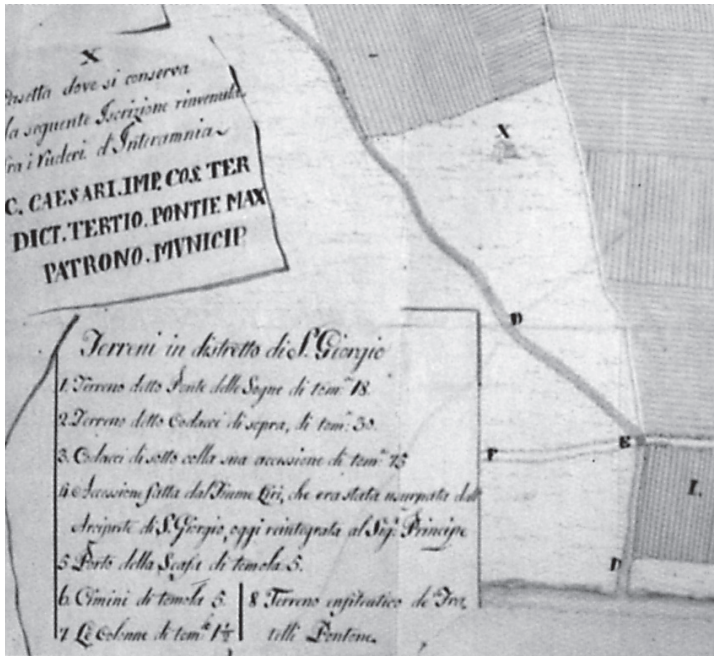 X
Casetta dove si conserva
la seguente Iscrizione rinvenuta
fra i Ruderi d'Interamnia
C. CAESARI. IMP. COS. TER
DICT. TERTIO. PONTIF MAX
PATRONO. MVNICIP.
X
D
Terreni in distretto di S. Giorgio
1. Terreno detto Ponte delle Sogne di tom. 18.
2. Terreno detto Codacci di sopra, di tom. 30.
3. Codacci di sotto colla sua accessione di tom. 75
4. Accessione fatta dal Fiume Liri, che era stata usurpata dall'
Arciprete di S. Giorgio, oggi reintegrata al Sig. Principe
5. Porto della Scafa di tomola 5.
6. Cimini di tomola 5.
7. Le Colonne di tom. 1 1/2
8 Terreno enfiteutico de' Fra
telli Pontone.
F
E
I.
D